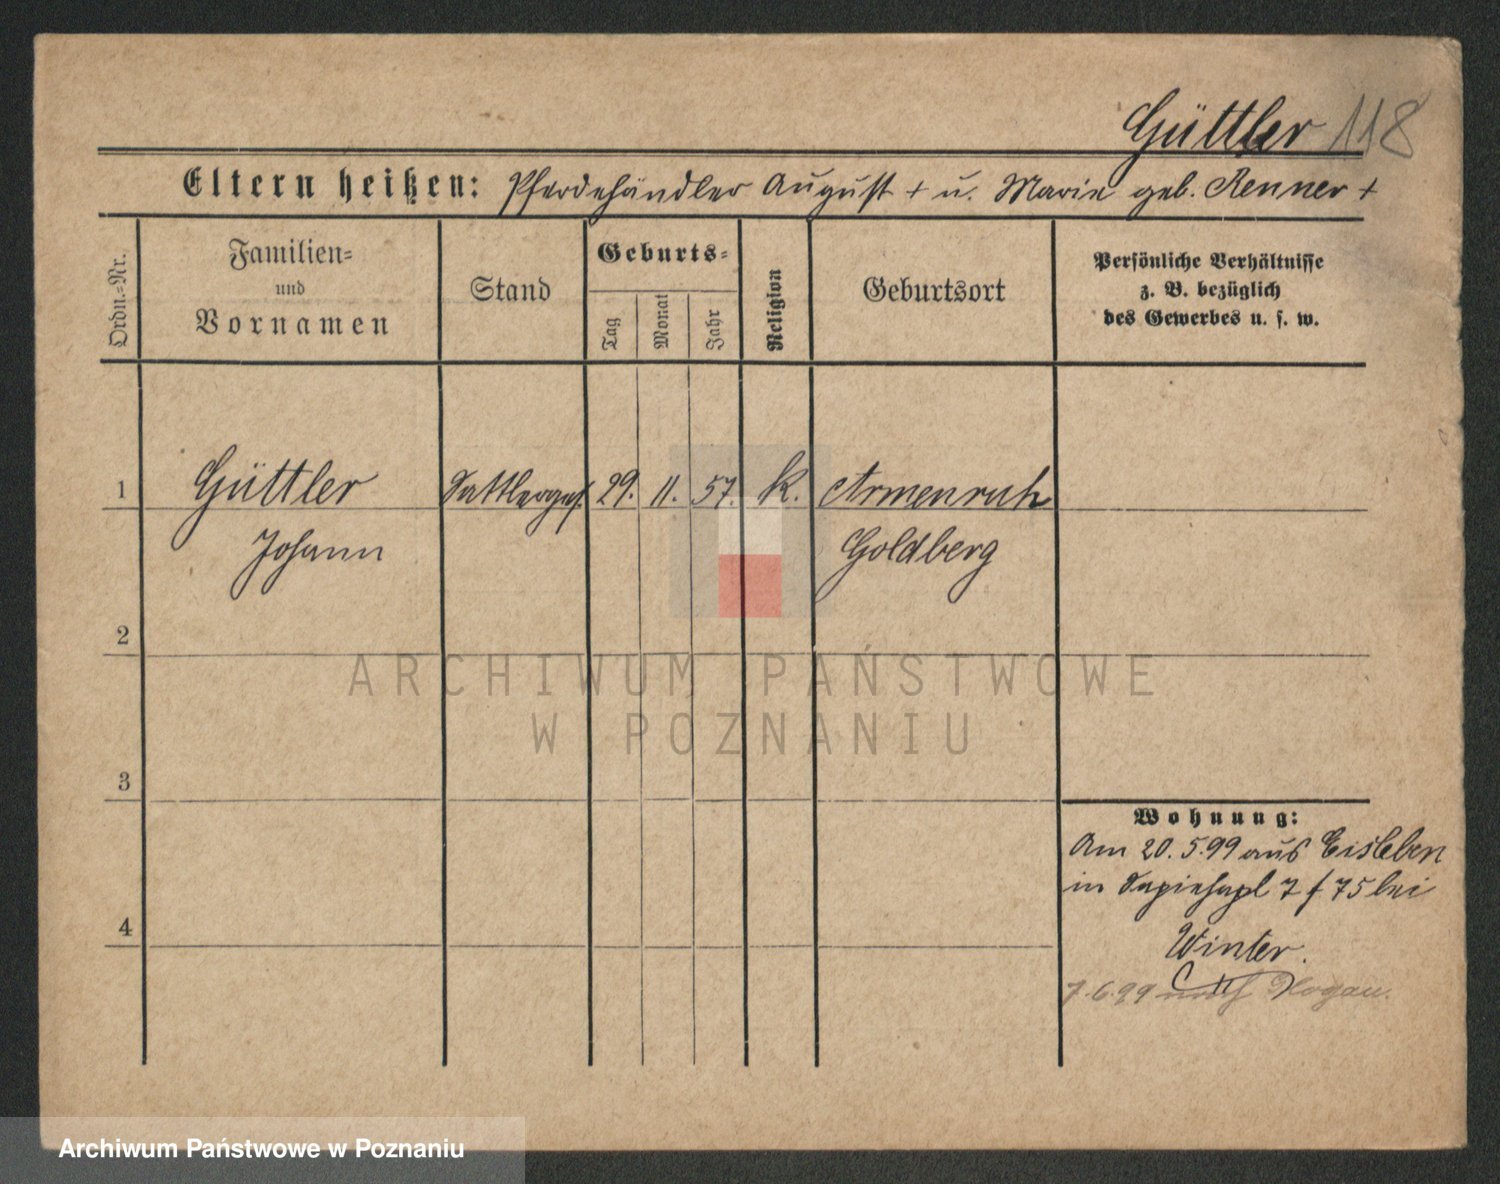 Güttler 118
Eltern heißen: Pferdehändler August + u. Marie geb. Renner +
Ordn.-Nr.
Familien-
und
Vornamen
Stand
Geburts-
Tag
Monat
Jahr
Religion
Geburtsort
Persönliche Verhältnisse
z. B. bezüglich
des Gewerbes u. s. w.
1 Güttler Sattlerges. 29. 11. 57. K. Armenruh
Johann Goldberg
2
ARCHIWUM PAŃSTWOWE
W POZNANIU
3
Wohnung:
Am 20.5.99 aus Eisleben
in Sapiehapl 7 f 75 bei
4
Winter.
7.6.99 nach Glogau.
Archiwum Państwowe w Poznaniu